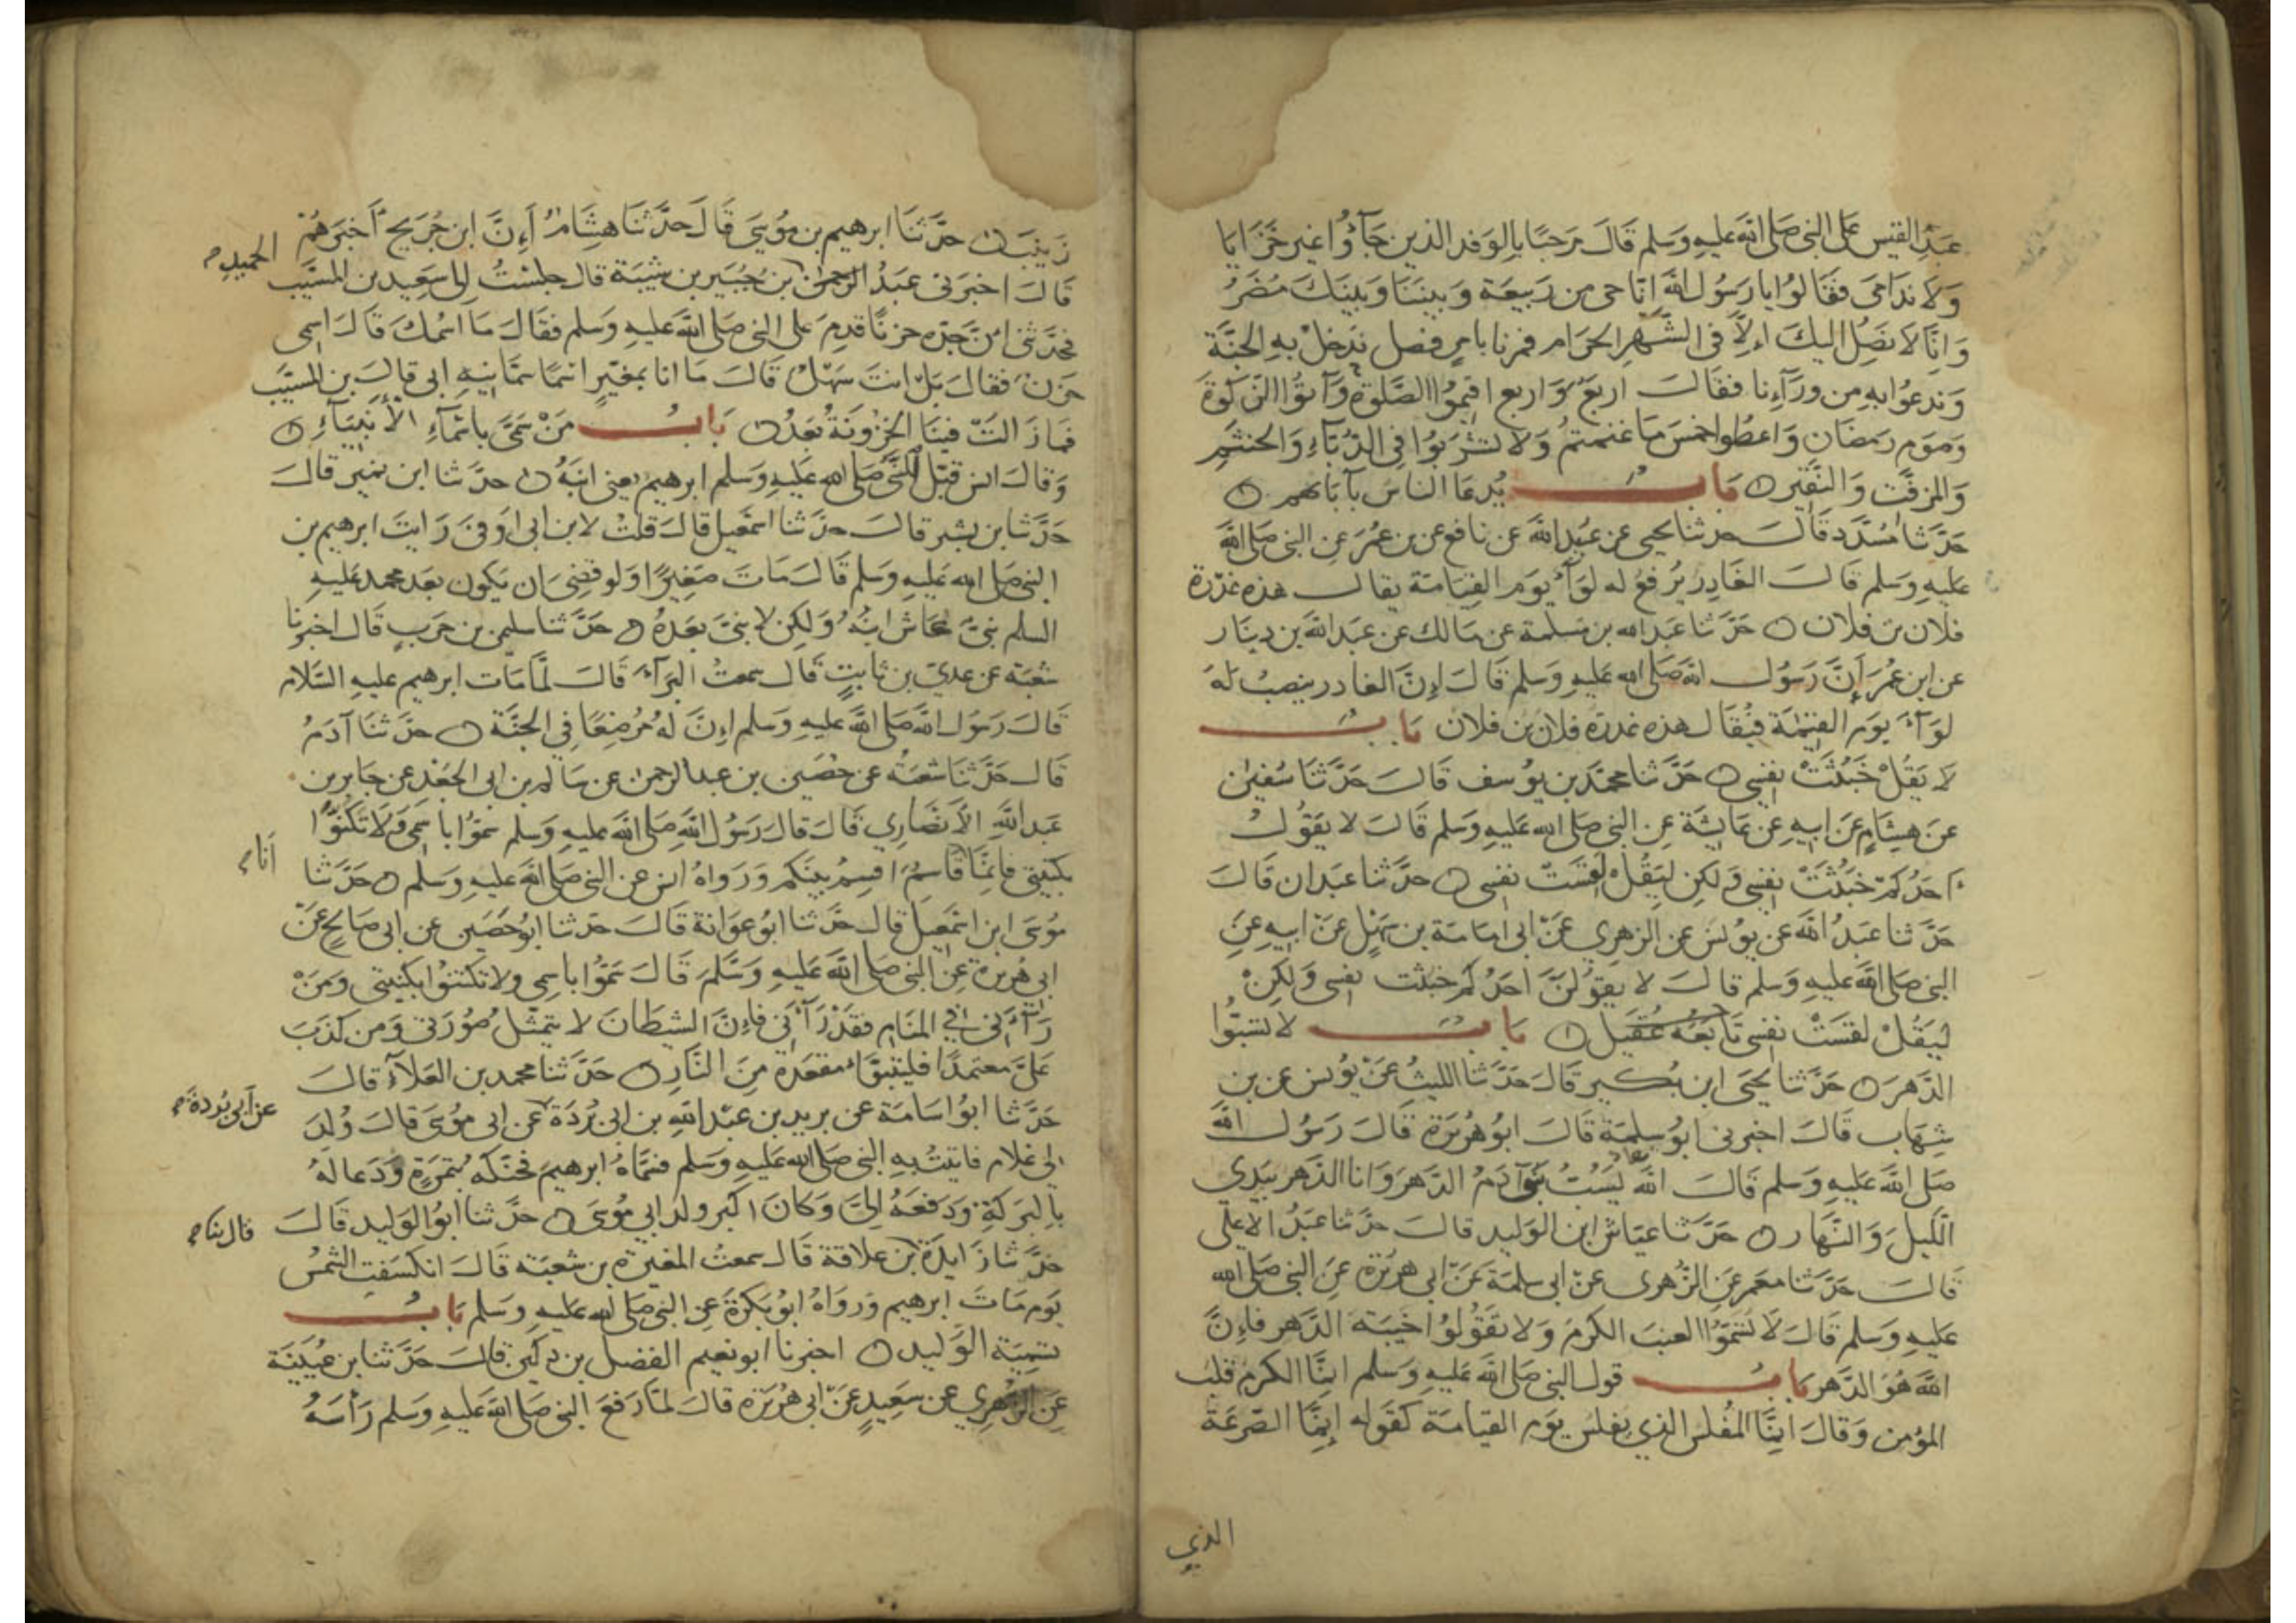 عبد القيس على النبي صلى الله عليه وسلم قال مرحبا بالوفد الذين جآؤا غير خزايا
ولا ندامى فقالوا يا رسول الله انا حي من ربيعة وبيننا وبينك مضر
وانا لا نصل اليك الا في الشهر الحرام فمرنا بامر فصل ندخل به الجنة
وندعوا به من ورآءنا فقال اربع واربع اقيموا الصلوة وآتوا الزكوة
وصوم رمضان واعطوا خمس ما غنمتم ولا تشربوا في الدبآء والحنتم
والمزفت والنقير باب يدعا الناس بآبائهم
حدثنا مسدد قال حدثنا يحيى عن عبيد الله عن نافع عن بن عمر عن النبي صلى الله
عليه وسلم قال الغادر يرفع له لوآء يوم القيامة يقال هذه غدرة
فلان بن فلان حدثنا عبد الله بن مسلمة عن مالك عن عبد الله بن دينار
عن ابن عمر أن رسول الله صلى الله عليه وسلم قال إن الغادر ينصب له
لوآء يوم القيمة فيقال هذه غدرة فلان بن فلان باب
لا يقل خبثت نفسي حدثنا محمد بن يوسف قال حدثنا سفين
عن هشام عن ابيه عن عايشة عن النبي صلى الله عليه وسلم قال لا يقول
احدكم خبثت نفسي ولكن ليقل لقست نفسي حدثنا عبدان قال
حدثنا عبد الله عن يونس عن الزهري عن ابي امامة بن سهل عن ابيه عن
النبي صلى الله عليه وسلم قال لا يقولن احدكم خبثت نفسي ولكن
ليقل لقست نفسي تابعه عقيل باب لا تسبوا
الدهر حدثنا يحيى ابن بكير قال حدثنا الليث عن يونس عن بن
شهاب قال اخبرني ابو سلمة قال ابو هريرة قال رسول الله
صلى الله عليه وسلم قال الله يسب بنو آدم الدهر وانا الدهر بيدي
الليل والنهار حدثنا عياش ابن الوليد قال حدثنا عبد الاعلى
قال حدثنا معمر عن الزهري عن ابي سلمة عن ابي هريرة عن النبي صلى الله
عليه وسلم قال لا تسموا العنب الكرم ولا تقولوا خيبة الدهر فإن
الله هو الدهر باب قول النبي صلى الله عليه وسلم انما الكرم قلب
المؤمن وقال انما المفلس الذي يفلس يوم القيامة كقوله إنما الصرعة
الذي
زينب حدثنا ابرهيم بن موسى قال حدثنا هشام أن ابن جريج أخبرهم
قال اخبرني عبد الرحمن بن جبير بن شيبة قال جلست الى سعيد بن المسيب
فحدثني ان جده حزنا قدم على النبي صلى الله عليه وسلم فقال ما اسمك قال اسمي
حزن فقال بل انت سهل قال ما انا بمغير اسما سمانيه ابي قال بن المسيب
فما زالت فينا الحزونة بعد باب من سمى باسمآء الأنبيآء
وقال انس قبل النبي صلى الله عليه وسلم ابرهيم يعني ابنه حدثنا ابن نمير قال
حدثنا بن بشر قال حدثنا اسمعيل قال قلت لابن ابي اوفى رايت ابرهيم بن
النبي صلى الله عليه وسلم قال مات صغيرا ولو قضي ان يكون بعد محمد عليه
السلم نبي عاش ابنه ولكن لا نبي بعده حدثنا سليمن بن حرب قال اخبرنا
شعبة عن عدي بن ثابت قال سمعت البرآء قال لما مات ابرهيم عليه السلام
قال رسول الله صلى الله عليه وسلم إن له مرضعا في الجنة حدثنا آدم
قال حدثنا شعبة عن حصين بن عبد الرحمن عن سالم بن ابي الجعد عن جابر بن
عبد الله الأنصاري قال قال رسول الله صلى الله عليه وسلم سموا باسمي ولا تكنوا
بكنيتي فانما قاسم اقسم بينكم ورواه انس عن النبي صلى الله عليه وسلم حدثنا
موسى ابن اسمعيل قال حدثنا ابو عوانة قال حدثنا ابو حصين عن ابي صالح عن
ابي هريرة عن النبي صلى الله عليه وسلم قال سموا باسمي ولا تكتنوا بكنيتي ومن
رآني في المنام فقد رآني فإن الشيطان لا يتمثل صورتي ومن كذب
علي معتمدا فليتبوأ مقعده من النار حدثنا محمد بن العلآء قال
حدثنا ابو اسامة عن بريد بن عبد الله بن ابي بردة عن ابي موسى قال ولد
لي غلام فاتيت به النبي صلى الله عليه وسلم فسماه ابرهيم فحنكه بتمرة ودعا له
بالبركة ودفعه الي وكان اكبر ولد ابي موسى حدثنا ابو الوليد قال
حدثنا زايدة بن علاقة قال سمعت المغيرة بن شعبة قال انكسفت الشمس
يوم مات ابرهيم ورواه ابو بكرة عن النبي صلى الله عليه وسلم باب
تسمية الوليد اخبرنا ابو نعيم الفضل بن دكين قال حدثنا بن عيينة
عن الزهري عن سعيد عن ابي هريرة قال لما رفع النبي صلى الله عليه وسلم رأسه
الحميد
أنا
عن أبي بردة